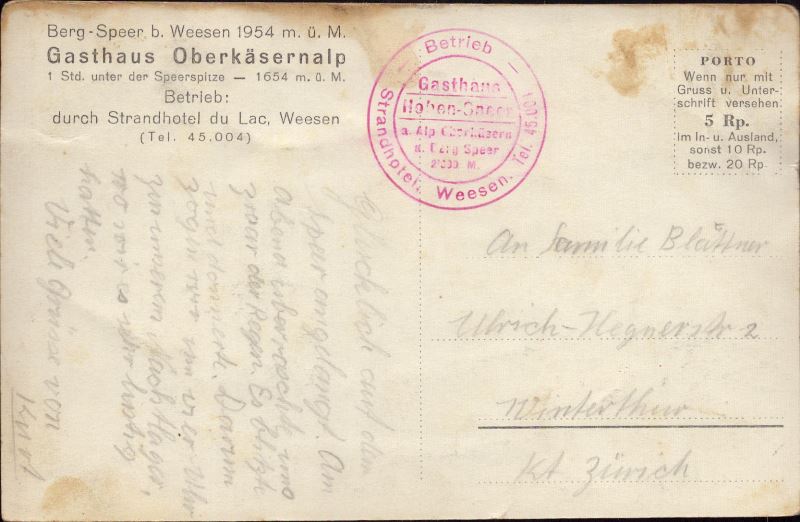 Berg-Speer b. Weesen 1954 m. ü. M.
Gasthaus Oberkäsernalp
1 Std. unter der Speerspitze — 1654 m. ü. M.
Betrieb:
durch Strandhotel du Lac, Weesen
(Tel. 45.004)
— Betrieb —
Strandhotel, Weesen, Tel. 45.001
Gasthaus
Hohen-Speer
a. Alp Oberkäsern
a. Berg Speer
M.
PORTO
Wenn nur mit
Gruss u. Unter-
schrift versehen
5 Rp.
Im In- u. Ausland,
sonst 10 Rp.
bezw. 20 Rp.
Glücklich auf dem
Speer angelangt. Am
Abend überrascht uns
zwar der Regen. Es blitzt
und donnert. Darum
zogen wir um vier Uhr
zu unserem
wo wir es sehr lustig
hatten.
Viele Grüsse von
An Familie Blättner
Ulrich-Hegnerstr 2
Winterthur
Kt. Zürich